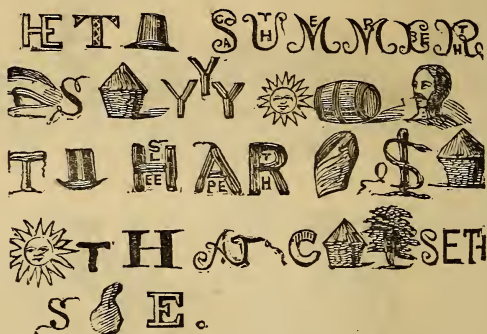 HE T SUMMER
S YYY
T HAR $
T H A C SETH
S E.